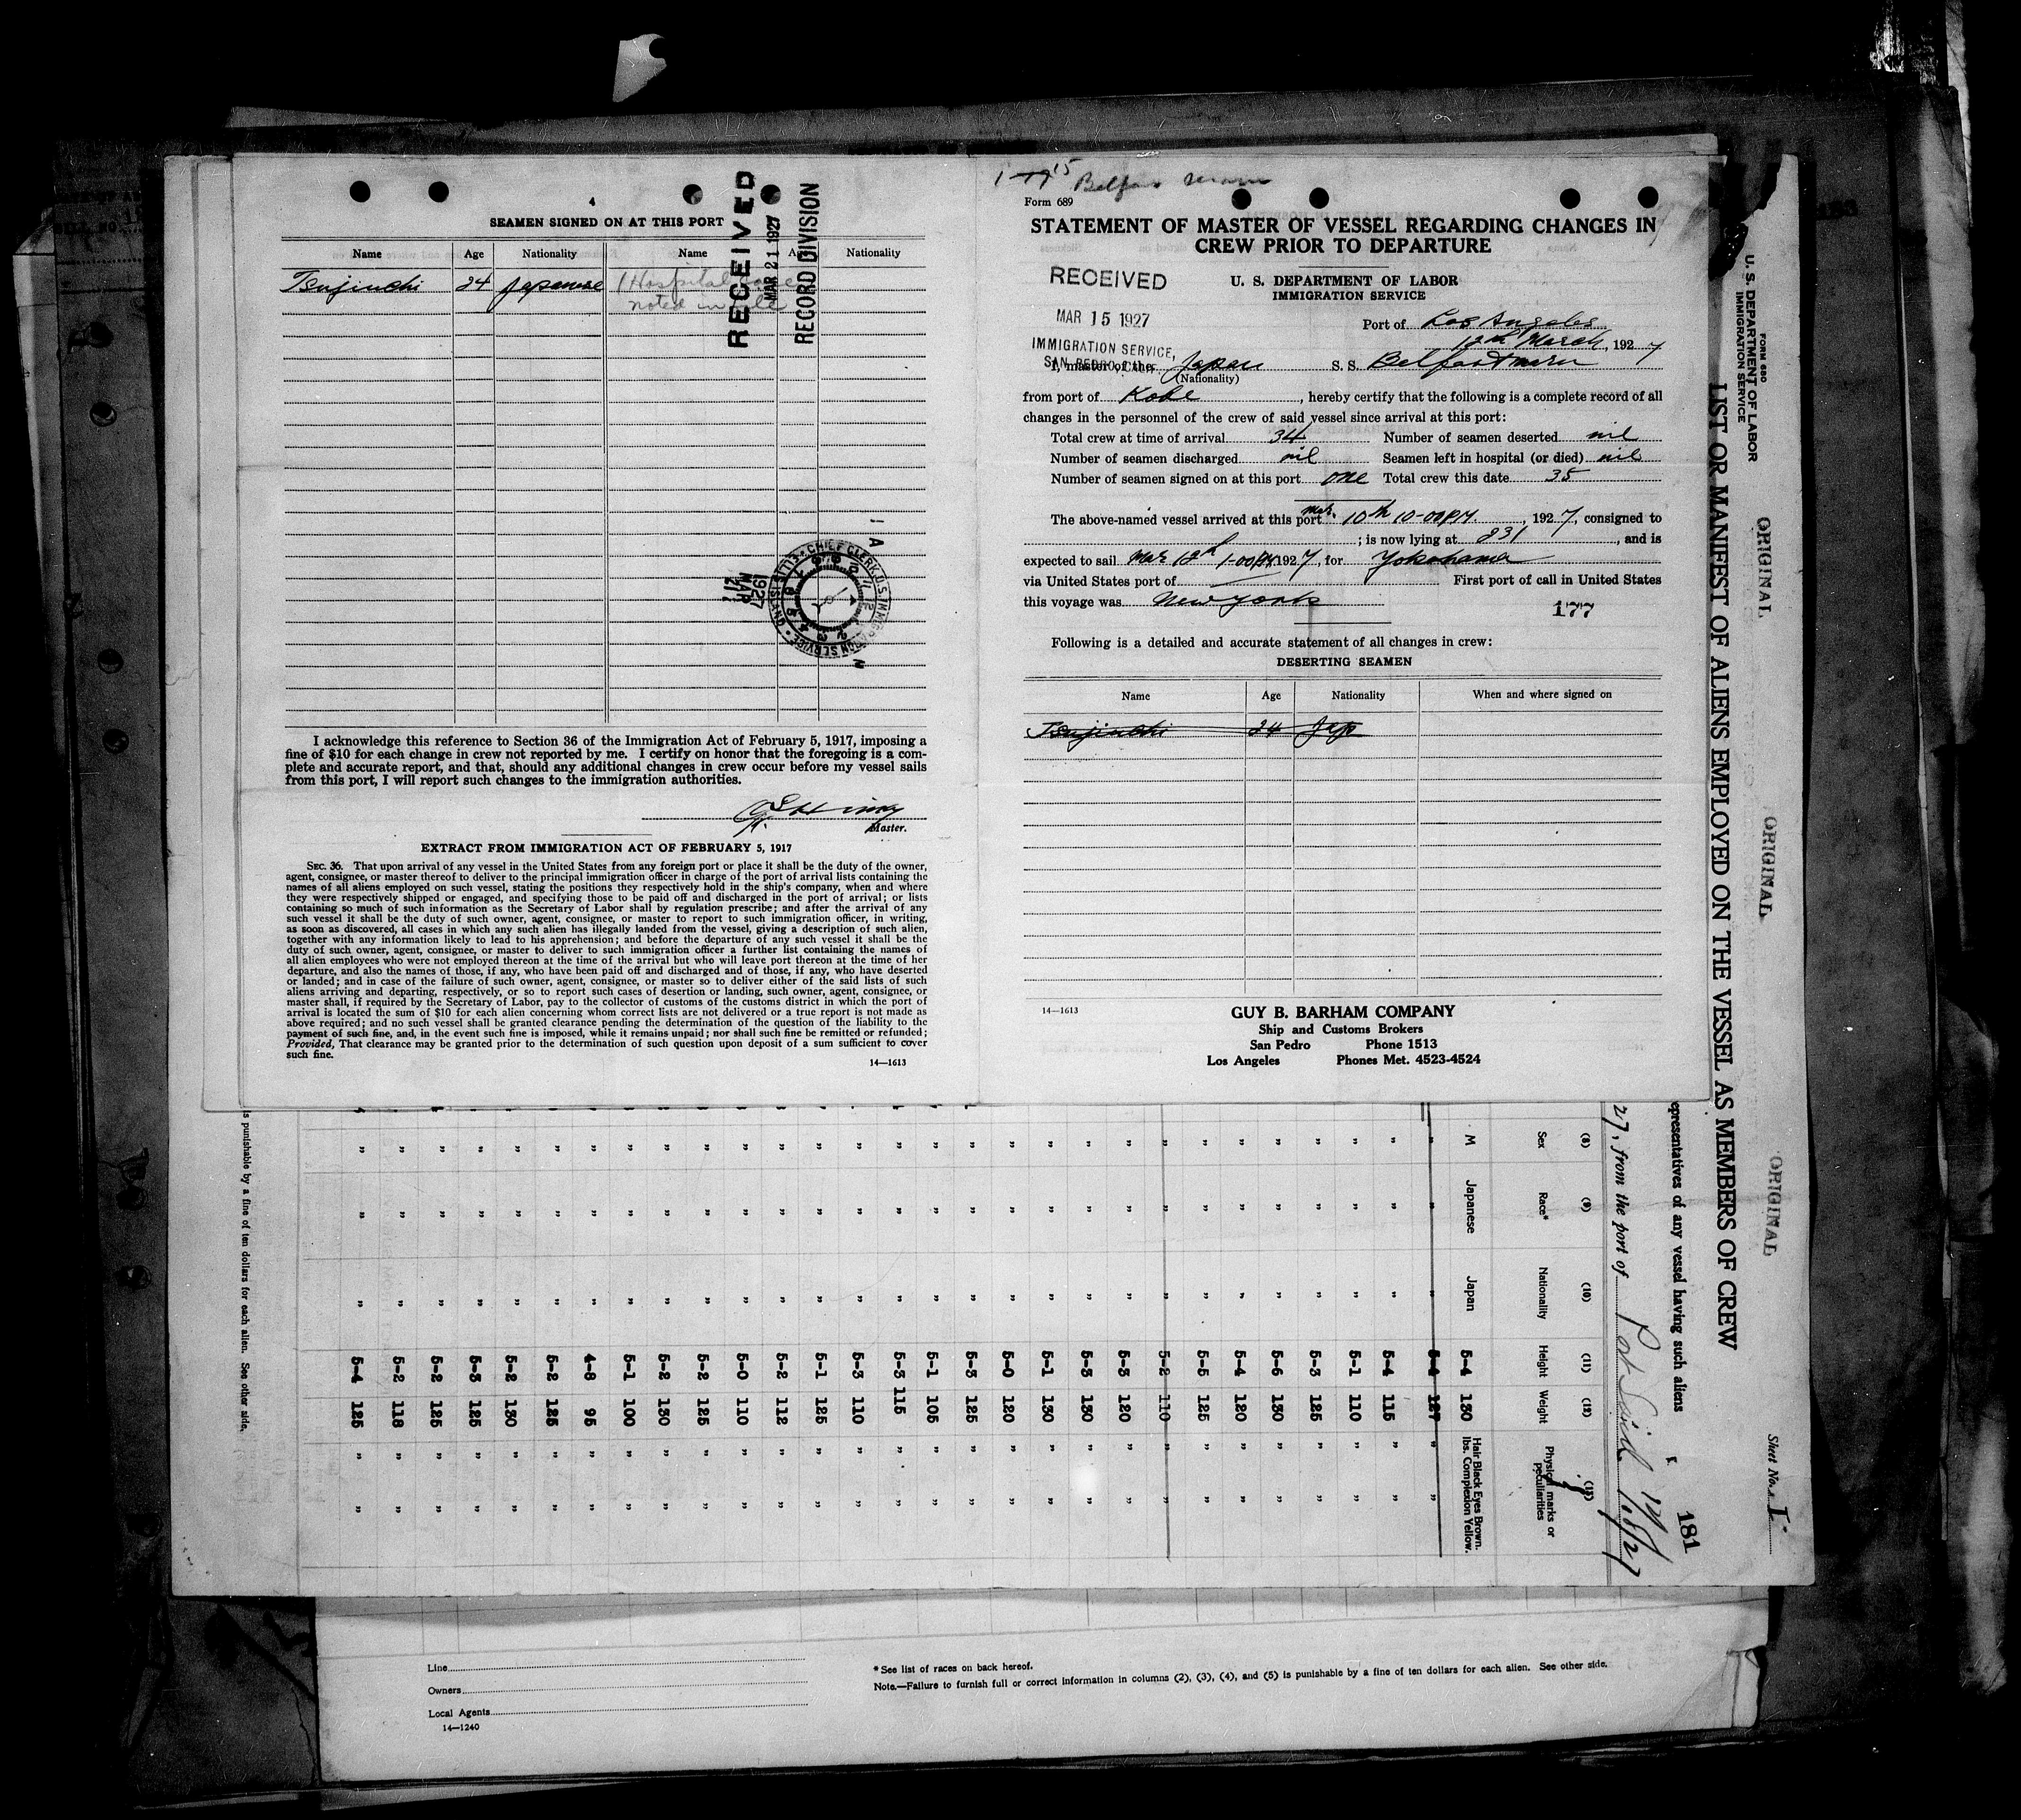 4
SEAMEN SIGNED ON AT THIS PORT
Name Age Nationality Name Age Nationality
Tsujiuchi 24 Japanese 1 Hospital case
noted in file
RECEIVED
MAR 21 1927
RECORD DIVISION
CHIEF CLERK, U.S. IMMIGRATION SERVICE
1927
MAR
I acknowledge this reference to Section 36 of the Immigration Act of February 5, 1917, imposing a
fine of $10 for each change in crew not reported by me. I certify on honor that the foregoing is a com-
plete and accurate report, and that, should any additional changes in crew occur before my vessel sails
from this port, I will report such changes to the immigration authorities.
Master.
EXTRACT FROM IMMIGRATION ACT OF FEBRUARY 5, 1917
SEC. 36. That upon arrival of any vessel in the United States from any foreign port or place it shall be the duty of the owner,
agent, consignee, or master thereof to deliver to the principal immigration officer in charge of the port of arrival lists containing the
names of all aliens employed on such vessel, stating the positions they respectively hold in the ship's company, when and where
they were respectively shipped or engaged, and specifying those to be paid off and discharged in the port of arrival; or lists
containing so much of such information as the Secretary of Labor shall by regulation prescribe; and after the arrival of any
such vessel it shall be the duty of such owner, agent, consignee, or master to report to such immigration officer, in writing,
as soon as discovered, all cases in which any such alien has illegally landed from the vessel, giving a description of such alien,
together with any information likely to lead to his apprehension; and before the departure of any such vessel it shall be the
duty of such owner, agent, consignee, or master to deliver to such immigration officer a further list containing the names of
all alien employees who were not employed thereon at the time of the arrival but who will leave port thereon at the time of her
departure, and also the names of those, if any, who have been paid off and discharged and of those, if any, who have deserted
or landed; and in case of the failure of such owner, agent, consignee, or master so to deliver either of the said lists of such
aliens arriving and departing, respectively, or so to report such cases of desertion or landing, such owner, agent, consignee, or
master shall, if required by the Secretary of Labor, pay to the collector of customs of the customs district in which the port of
arrival is located the sum of $10 for each alien concerning whom correct lists are not delivered or a true report is not made as
above required; and no such vessel shall be granted clearance pending the determination of the question of the liability to the
payment of such fine, and, in the event such fine is imposed, while it remains unpaid; nor shall such fine be remitted or refunded;
Provided, That clearance may be granted prior to the determination of such question upon deposit of a sum sufficient to cover
such fine.
14—1613
Belfast maru
Form 689
STATEMENT OF MASTER OF VESSEL REGARDING CHANGES IN
CREW PRIOR TO DEPARTURE
RECEIVED
MAR 15 1927
IMMIGRATION SERVICE,
SAN PEDRO, CAL.
U. S. DEPARTMENT OF LABOR
IMMIGRATION SERVICE
Port of Los Angeles
12th March, 1927
I, master of the Japan S. S. Belfast maru
(Nationality)
from port of Kobe, hereby certify that the following is a complete record of all
changes in the personnel of the crew of said vessel since arrival at this port:
Total crew at time of arrival 34 Number of seamen deserted nil
Number of seamen discharged nil Seamen left in hospital (or died) nil
Number of seamen signed on at this port one Total crew this date 35
The above-named vessel arrived at this port Mar. 10th 10-00 PM, 1927, consigned to
; is now lying at 231, and is
expected to sail Mar 12th 1-00 PM 1927, for Yokohama
via United States port of First port of call in United States
this voyage was New York
177
Following is a detailed and accurate statement of all changes in crew:
DESERTING SEAMEN
Name Age Nationality When and where signed on
Tsujiuchi 24 Jap
14—1613
GUY B. BARHAM COMPANY
Ship and Customs Brokers
San Pedro Phone 1513
Los Angeles Phones Met. 4523-4524
FORM 680
U. S. DEPARTMENT OF LABOR
IMMIGRATION SERVICE
ORIGINAL
ORIGINAL
ORIGINAL
LIST OR MANIFEST OF ALIENS EMPLOYED ON THE VESSEL AS MEMBERS OF CREW
Sheet No. I
181
epresentatives of any vessel having such aliens
27, from the port of Port Said
(8) (9) (10) (11) (12) (13)
Sex Race* Nationality Height Weight Physical marks or peculiarities
M Japanese Japan 5-4 130 Hair Black Eyes Brown.
lbs. Complexion Yellow.
" " " 5-4 127 " "
" " " 5-4 115 " "
" " " 5-1 110 " "
" " " 5-3 125 " "
" " " 5-6 130 " "
" " " 5-4 120 " "
" " " 5-5 125 " "
" " " 5-2 110 " "
" " " 5-3 120 " "
" " " 5-3 130 " "
" " " 5-1 130 " "
" " " 5-0 120 " "
" " " 5-3 125 " "
" " " 5-1 105 " "
" " " 5-3 115 " "
" " " 5-3 110 " "
" " " 5-1 125 " "
" " " 5-2 112 " "
" " " 5-0 110 " "
" " " 5-2 125 " "
" " " 5-2 130 " "
" " " 5-1 100 " "
" " " 4-8 95 " "
" " " 5-2 125 " "
" " " 5-2 130 " "
" " " 5-3 125 " "
" " " 5-2 125 " "
" " " 5-2 118 " "
" " " 5-4 125 " "
is punishable by a fine of ten dollars for each alien. See other side.
Line
Owners
Local Agents
14—1240
* See list of races on back hereof.
Note.—Failure to furnish full or correct information in columns (2), (3), (4), and (5) is punishable by a fine of ten dollars for each alien. See other side.